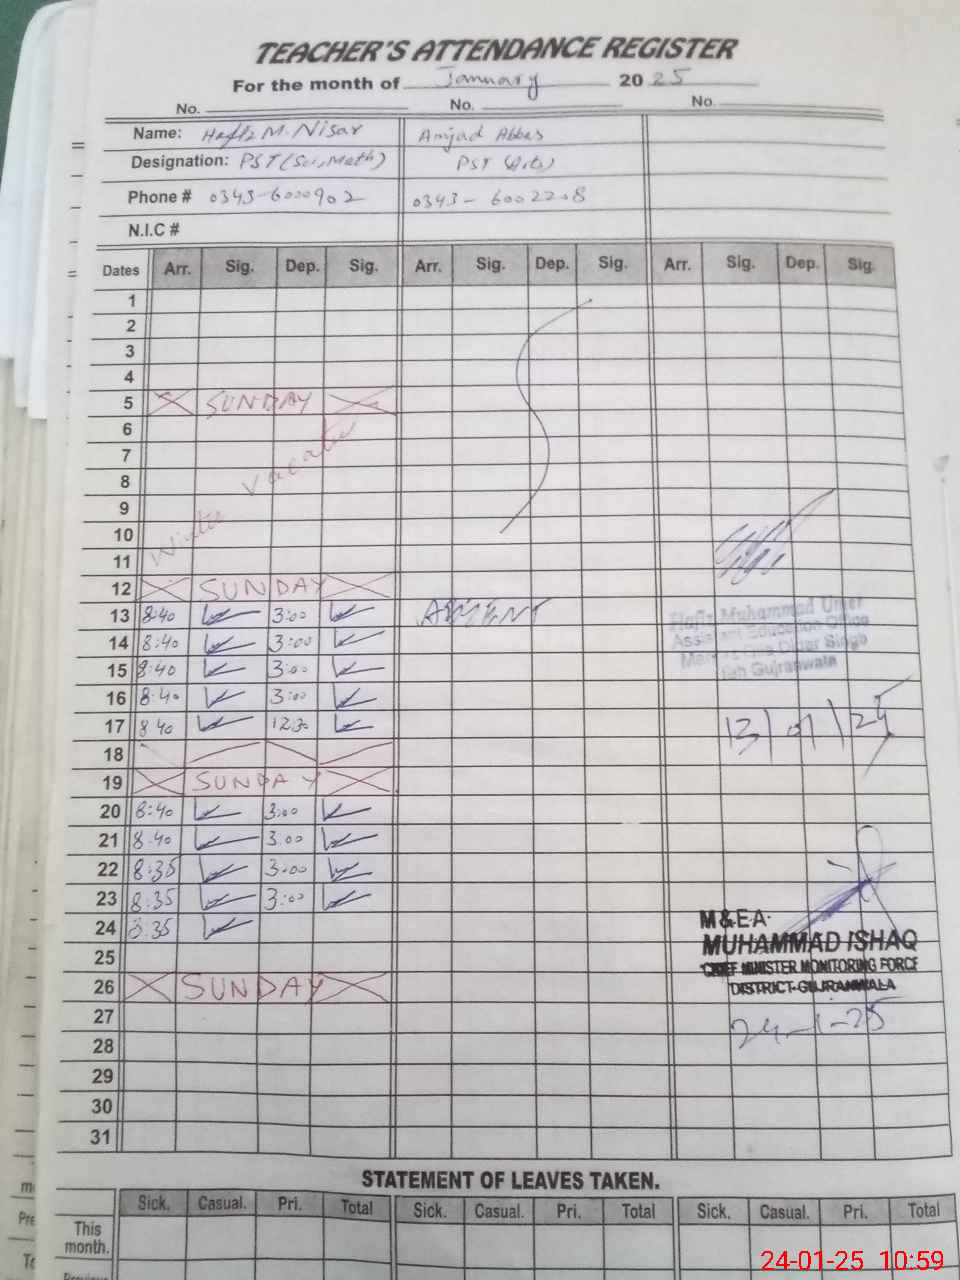 TEACHER'S ATTENDANCE REGISTER
For the month of January 2025
No. No. No.
Name: Hafiz M. Nisar Amjad Abbas
Designation: PST (Sci, Math) PST (Arts)
Phone # 0343-6000902 0343-6002208
N.I.C #
Dates Arr. Sig. Dep. Sig. Arr. Sig. Dep. Sig. Arr. Sig. Dep. Sig.
1
2
3
4
5 SUNDAY
6
7
8
9
10
11
Winter Vacation
12 SUNDAY
13 8:40 3:00 ABSENT
14 8:40 3:00
15 8:40 3:00
16 8:40 3:00
17 8:40 12:30
18
19 SUNDAY
20 8:40 3:00
21 8:40 3:00
22 8:35 3:00
23 8:35 3:00
24 8:35
25
26 SUNDAY
27
28
29
30
31
Hafiz Muhammad Umer
Assistant Education Office
Singh
Gujranwala
13/01/25
M&EA
MUHAMMAD ISHAQ
CHIEF MINISTER MONITORING FORCE
DISTRICT GUJRANWALA
24-1-25
STATEMENT OF LEAVES TAKEN.
Sick. Casual. Pri. Total Sick. Casual. Pri. Total Sick. Casual. Pri. Total
This
month.
24-01-25 10:59